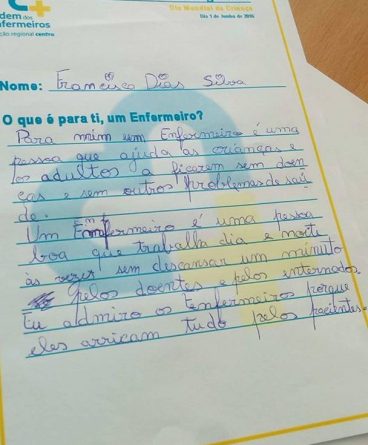 dem dos
fermeiros
ção regional centro
Dia Mundial da Criança
Dia 1 de Junho de 2016
Nome: Francisco Dias Silva
O que é para ti, um Enfermeiro?
Para mim um Enfermeiro é uma
pessoa que ajuda as crianças e
os adultos a ficarem sem doen
ças e sem outros problemas de saú
de.
Um Enfermeiro é uma pessoa
boa que trabalha dia e noite
às vezes sem descansar um minuto
pelos doentes e pelos internados.
Eu admiro os Enfermeiros porque
eles arricam tudo pelos pacientes.